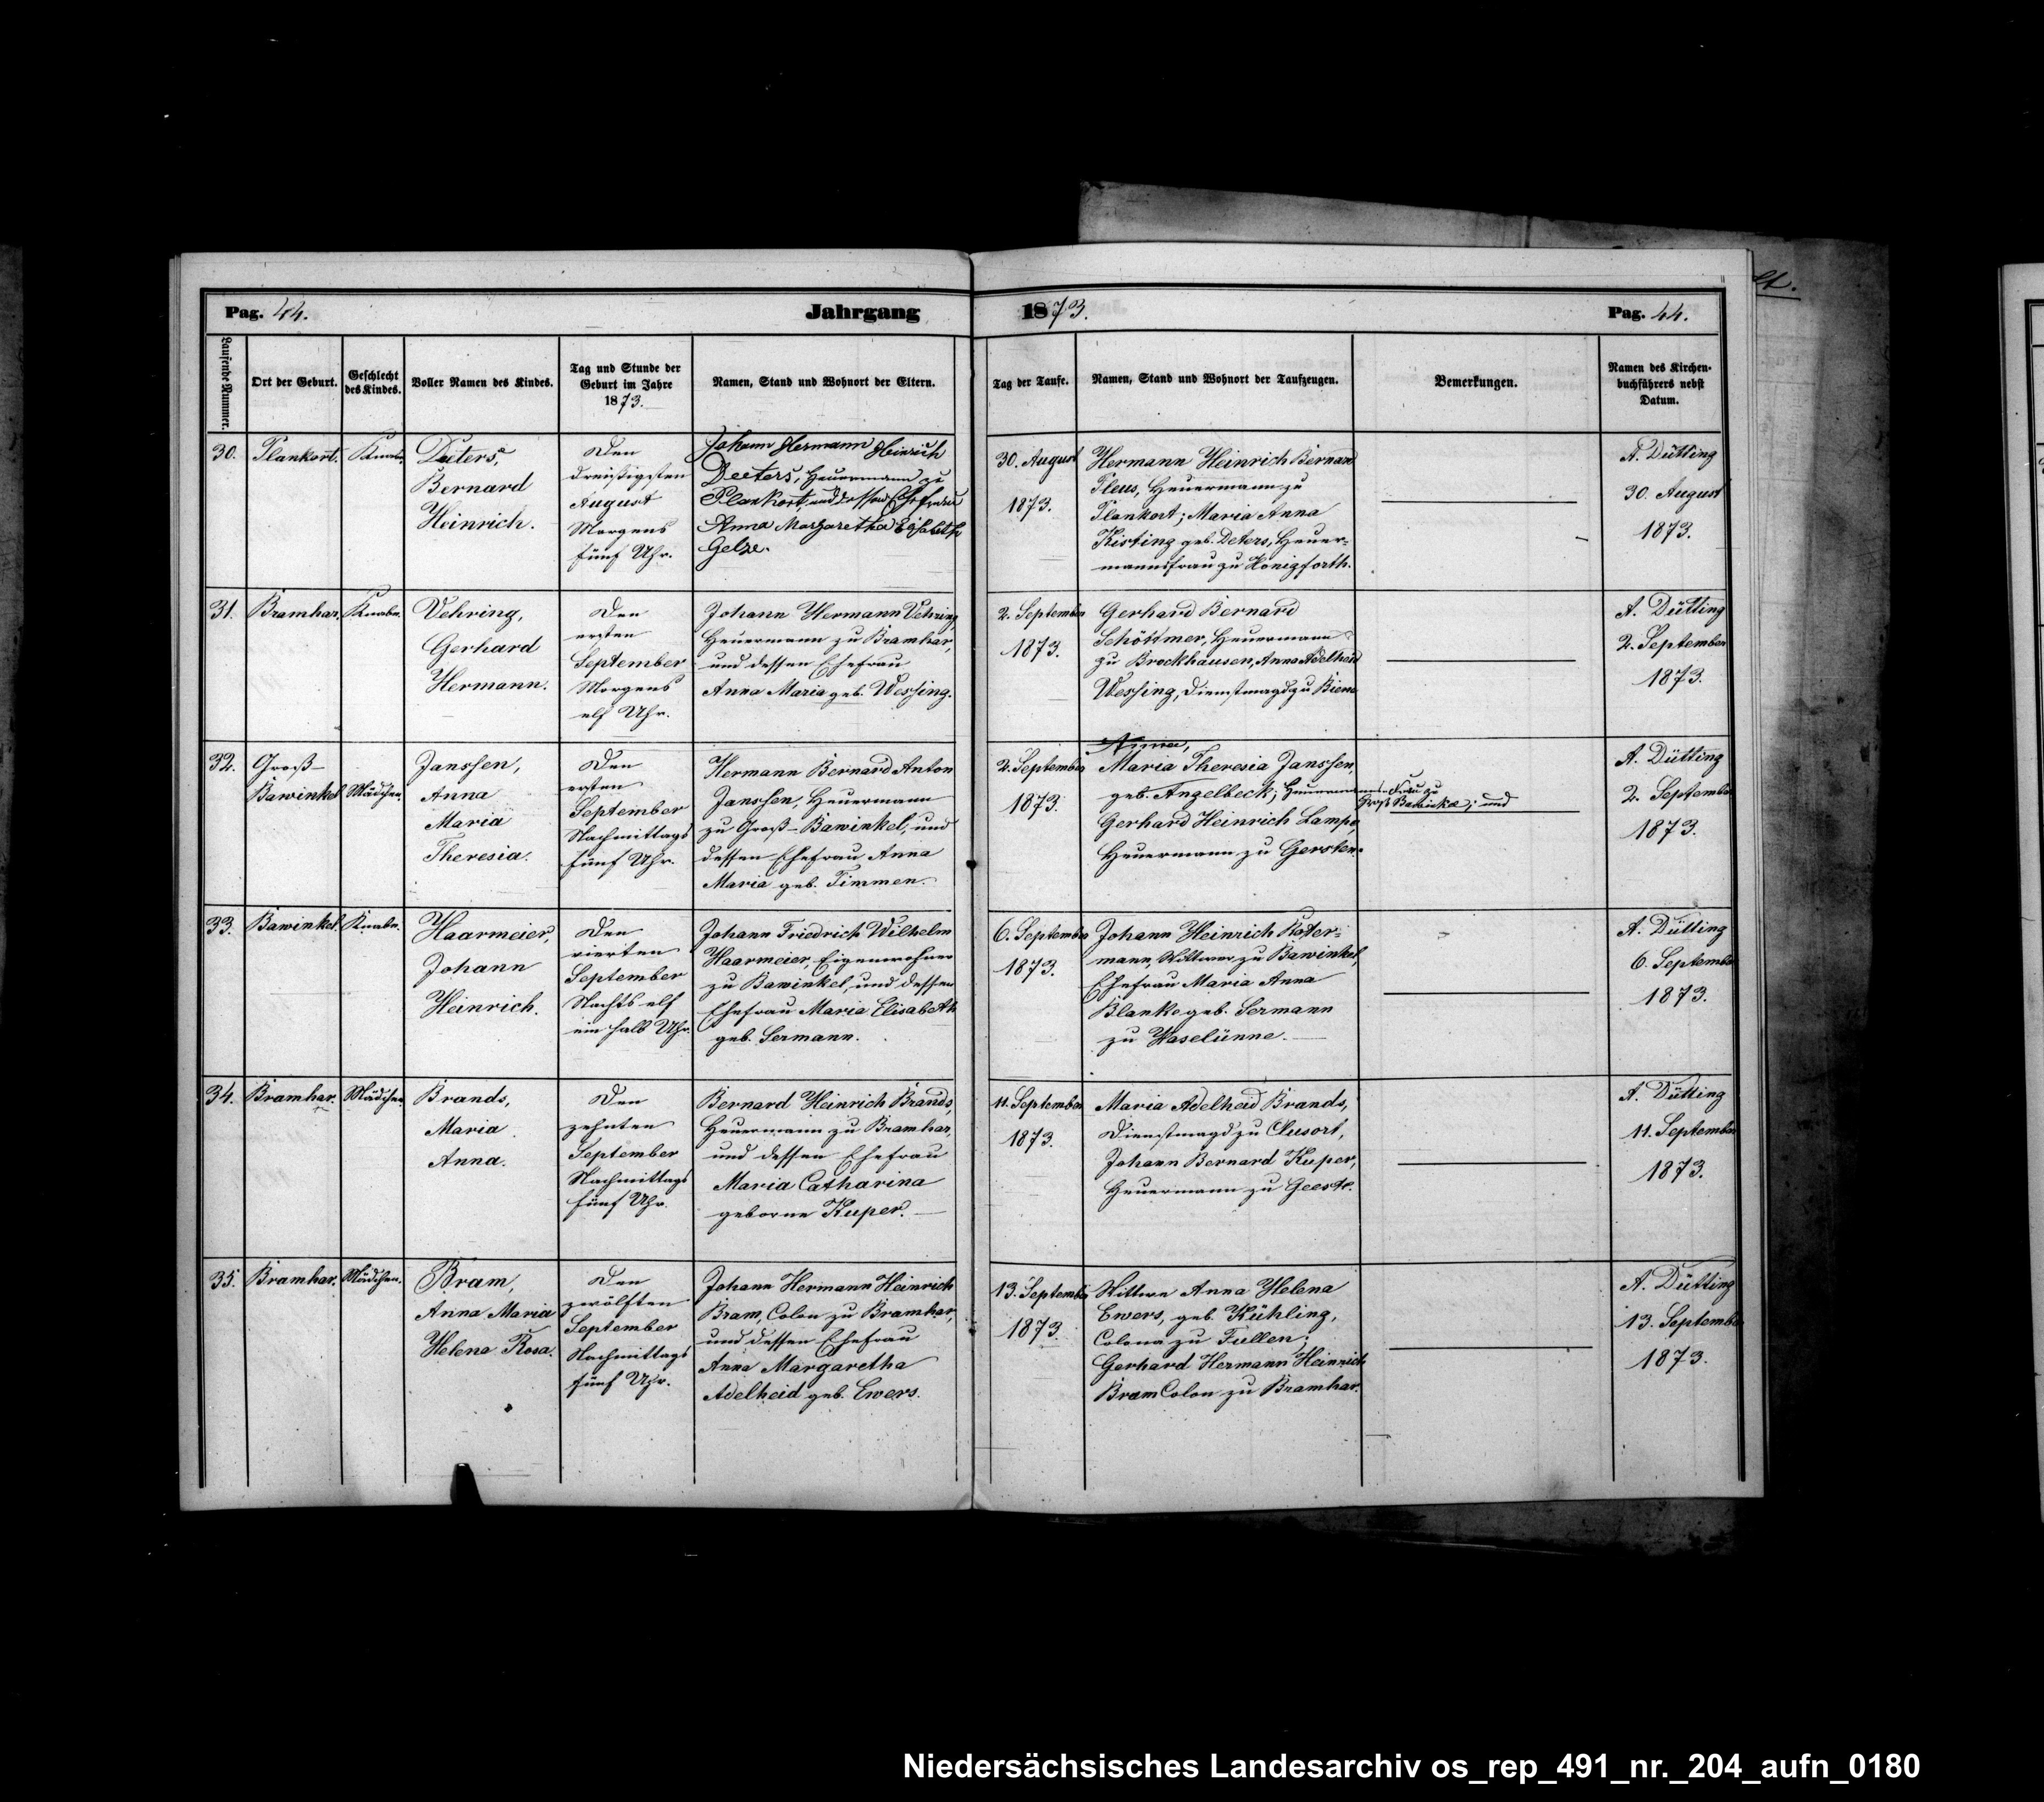 Pag. 44.
Jahrgang
1873.
Pag. 44.
Laufende Nummer.
Ort der Geburt.
Geschlecht
des Kindes.
Voller Namen des Kindes.
Tag und Stunde der
Geburt im Jahre
1873.
Namen, Stand und Wohnort der Eltern.
Tag der Taufe.
Namen, Stand und Wohnort der Taufzeugen.
Bemerkungen.
Namen des Kirchen-
buchführers nebst
Datum.
30.
Plankort.
Knabe.
Deeters,
Bernard
Heinrich.
Den
dreißigsten
August
Morgens
fünf Uhr.
Johann Hermann Heinrich
Deeters, Heuermann zu
Plankort, und dessen Ehefrau
Anna Margaretha Elisabeth
Gelze.
30. August
1873.
Hermann Heinrich Bernard
Pleus, Heuermann zu
Plankort; Maria Anna
Kisting geb. Deters, Heuer-
mannsfrau zu Königforth.
A. Dütting
30. August
1873.
31.
Bramhar.
Knabe.
Vehring,
Gerhard
Hermann.
Den
ersten
September
Morgens
elf Uhr.
Johann Hermann Vehring
Heuermann zu Bramhar,
und dessen Ehefrau
Anna Maria geb. Wessing.
2. September
1873.
Gerhard Bernard
Schöttmer, Heuermann
zu Brockhausen, Anna Adelheid
Wessing, Dienstmagd zu Biene
A. Dütting
2. September
1873.
32.
Groß-
Bawinkel
Mädchen.
Janssen,
Anna
Maria
Theresia.
Den
ersten
September
Nachmittags
fünf Uhr.
Hermann Bernard Anton
Janssen, Heuermann
zu Groß-Bawinkel, und
dessen Ehefrau Anna
Maria geb. Timmen.
2. September
1873.
Anna,
Maria Theresia Janssen,
geb. Angelbeck; Heuermanns-Frau zu
Groß Bawinkel; und
Gerhard Heinrich Lampe,
Heuermann zu Gersten.
A. Dütting
2. September
1873.
33.
Bawinkel.
Knabe.
Haarmeier,
Johann
Heinrich.
Den
vierten
September
Nachts elf
ein halb Uhr.
Johann Friedrich Wilhelm
Haarmeier, Eigenwohner
zu Bawinkel, und dessen
Ehefrau Maria Elisabeth
geb. Sermann.
6. September
1873.
Johann Heinrich Koter-
mann, Wittwer zu Bawinkel,
Ehefrau Maria Anna
Blanke geb. Sermann
zu Haselünne.
A. Dütting
6. September
1873.
34.
Bramhar.
Mädchen.
Brands,
Maria
Anna.
Den
zehnten
September
Nachmittags
fünf Uhr.
Bernard Heinrich Brands,
Heuermann zu Bramhar,
und dessen Ehefrau
Maria Catharina
geborne Kuper.
11. September
1873.
Maria Adelheid Brands,
Dienstmagd zu Clusort,
Johann Bernard Kuper,
Heuermann zu Geeste.
A. Dütting
11. September
1873.
35.
Bramhar.
Mädchen.
Bram,
Anna Maria
Helena Rosa.
Den
zwölften
September
Nachmittags
fünf Uhr.
Johann Hermann Heinrich
Bram, Colon zu Bramhar,
und dessen Ehefrau
Anna Margaretha
Adelheid geb. Ewers.
13. September
1873.
Wittwe Anna Helena
Ewers, geb. Kühling,
Colona zu Fullen;
Gerhard Hermann Heinrich
Bram Colon zu Bramhar.
A. Dütting
13. September
1873.
Niedersächsisches Landesarchiv os_rep_491_nr._204_aufn_0180